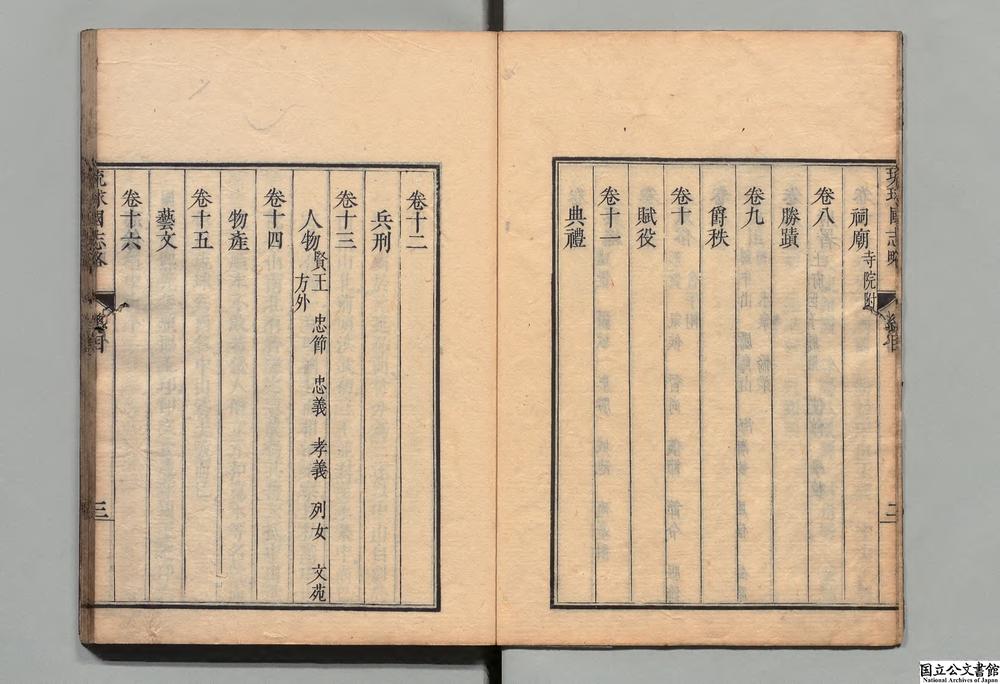 琉球國志略 總目 二
祠廟 寺院附
卷八
勝蹟
卷九
爵秩
卷十
賦役
卷十一
典禮
卷十二
兵刑
卷十三
人物 賢王 忠節 忠義 孝義 列女 文苑
方外
卷十四
物產
卷十五
藝文
卷十六
琉球國志略 總目 三
国立公文書館
National Archives of Japan